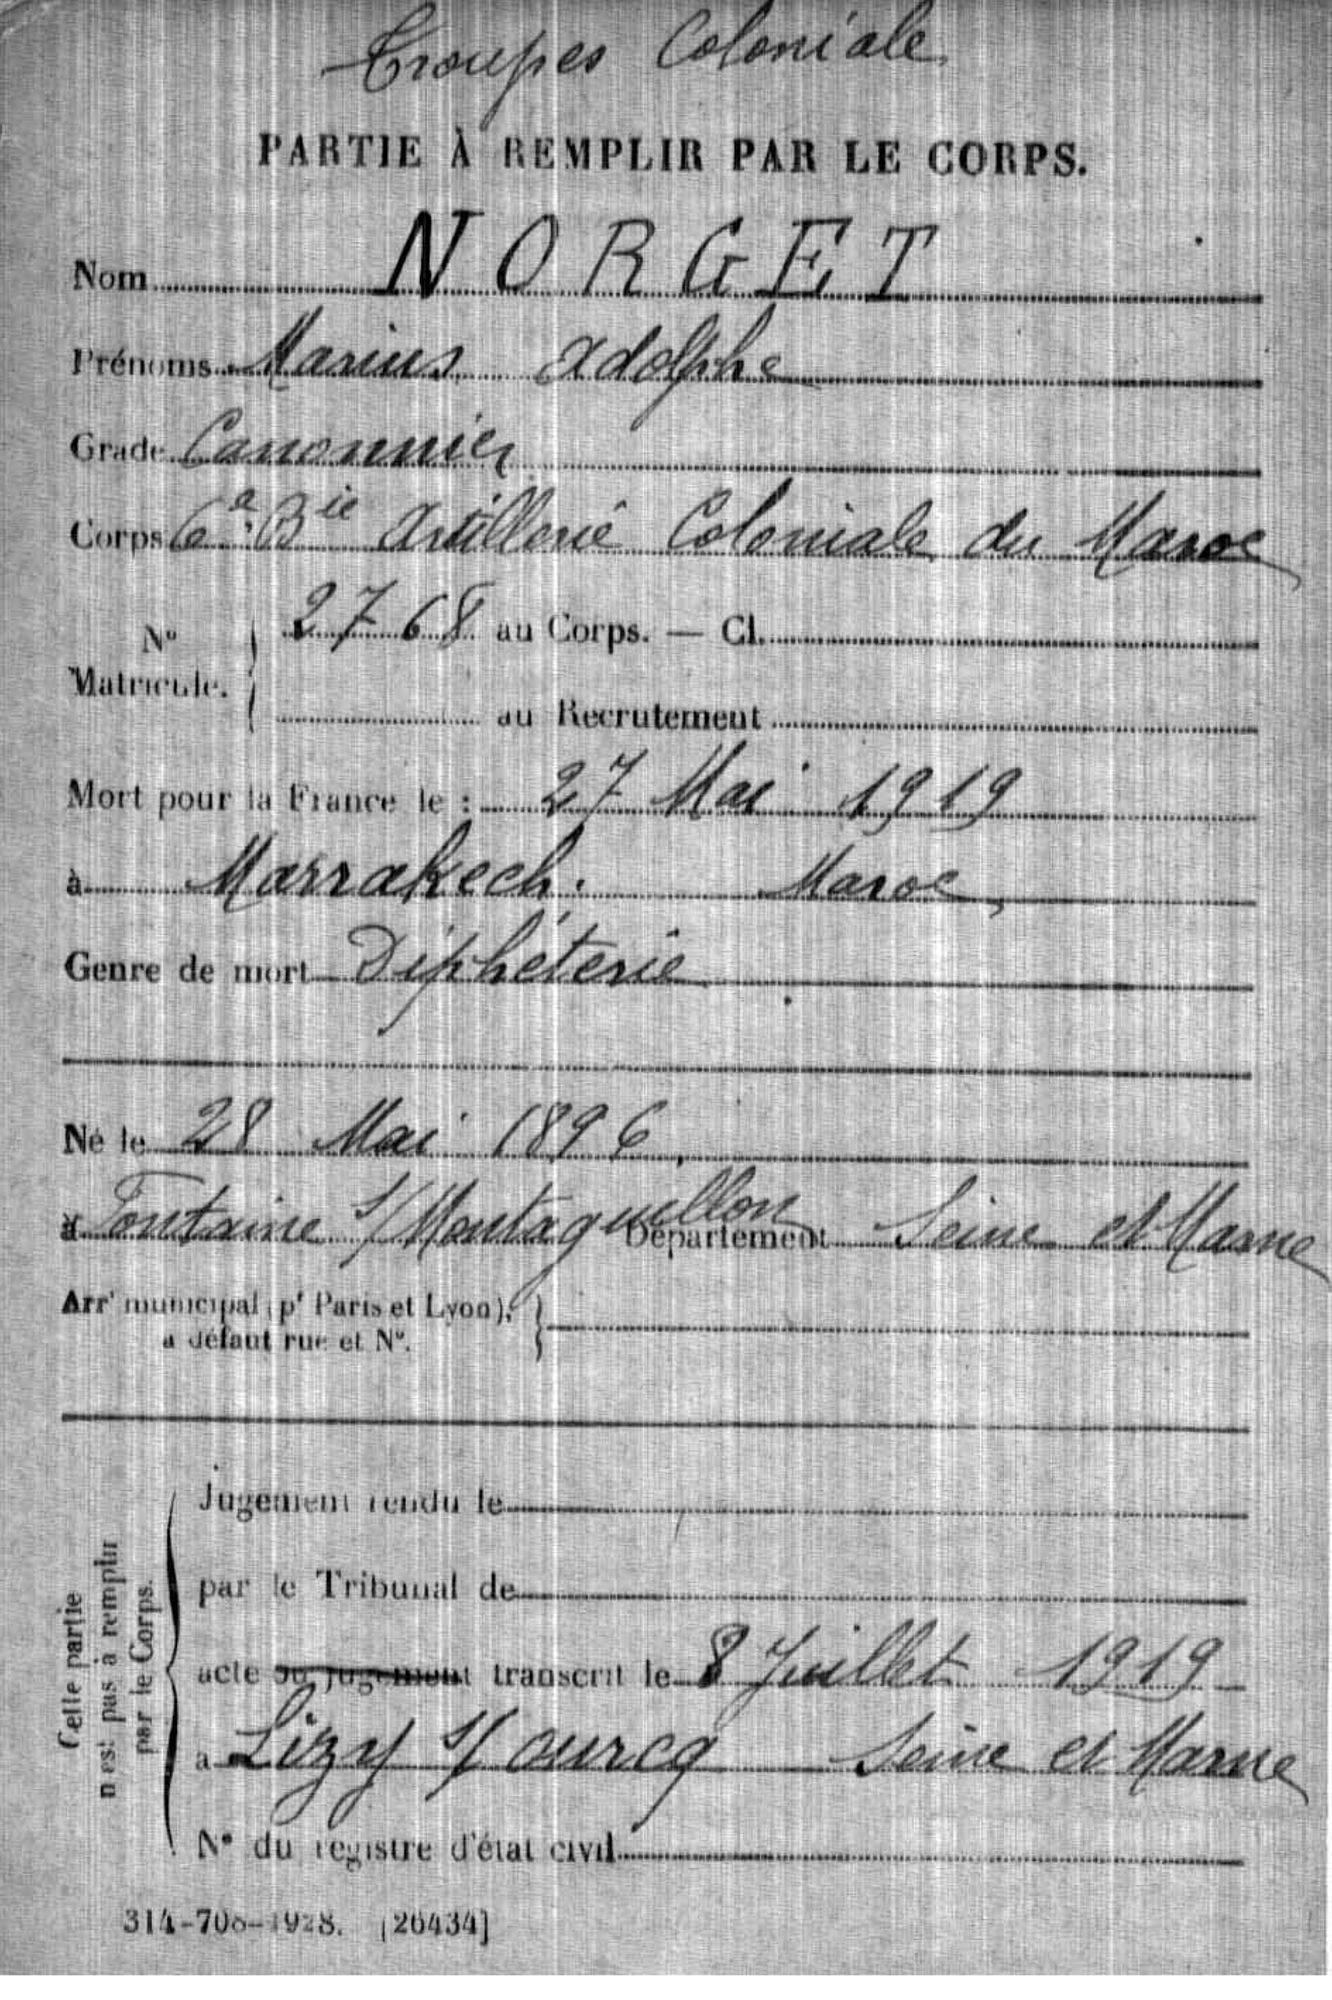 Troupes Coloniale
PARTIE À REMPLIR PAR LE CORPS.
Nom NORGET
Prénoms Marius Adolphe
Grade Canonnier
Corps 6e Bie Artillerie Coloniale du Maroc
No Matricule. 2768 au Corps. — Cl.
au Recrutement
Mort pour la France le : 27 Mai 1919
à Marrakech. Maroc
Genre de mort Diphéterie
Né le 28 Mai 1896
à Fontaine s/Montaguellon Département Seine et Marne
Arrt municipal (pr Paris et Lyon),
à défaut rue et No.
Cette partie
n'est pas à remplir
par le Corps.
Jugement rendu le
par le Tribunal de
acte ou jugement transcrit le 8 Juillet 1919
à Lizy s/ ourcq Seine et Marne
No du registre d'état civil
314-708-1928. [26434]